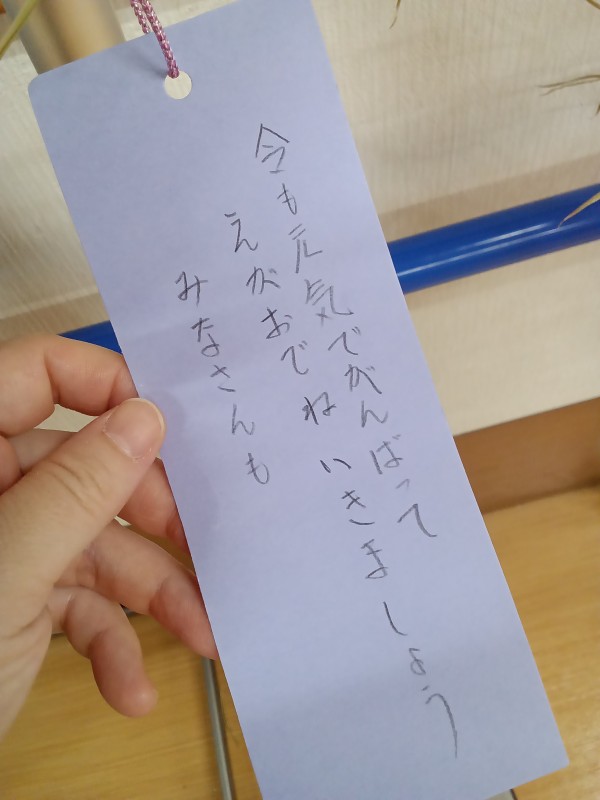 今も元気でがんばって
えがおで ね いきましょう
みなさんも